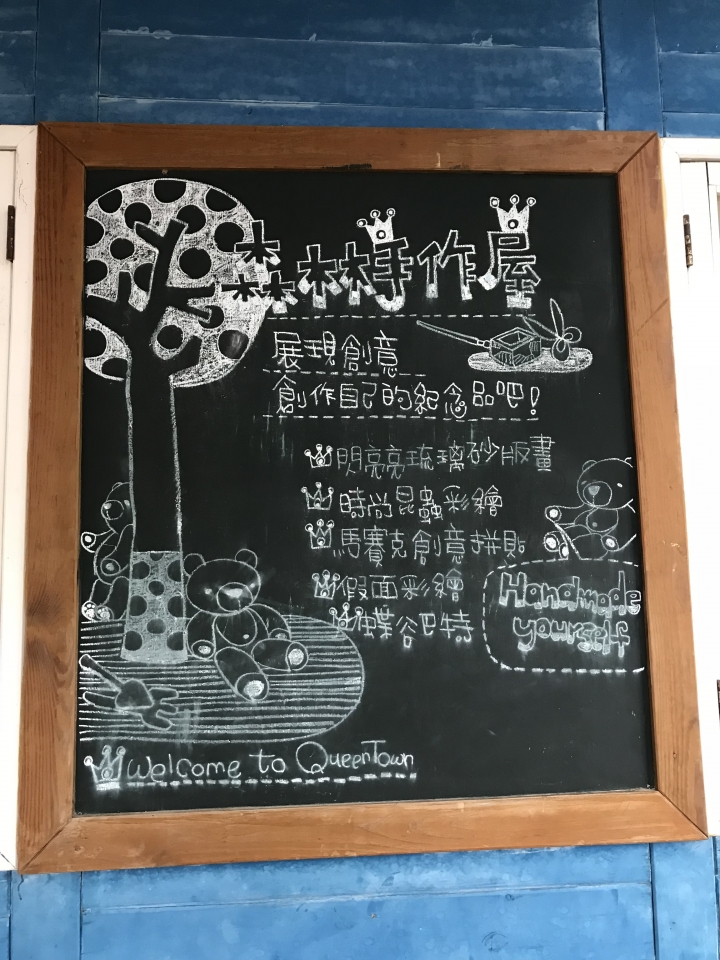 森林手作屋
展現創意
創作自己的紀念品吧!
明亮亮琉璃砂版畫
時尚昆蟲彩繪
馬賽克創意拼貼
假面彩繪
蝴蝶谷巴特
Handmade
yourself
Welcome to QueenTown